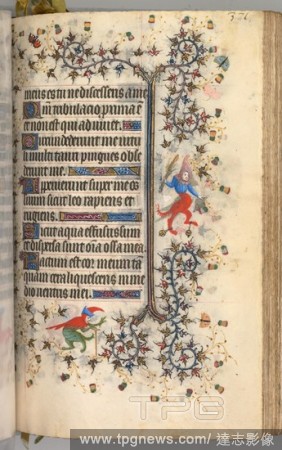 376
meus es tu ne discesseris a me
Qm̄ tribulacio proxima ē
et non est qui adiuvet
Circundederunt me vitu
li multi tauri pingues obse
derunt me
Aperuerunt super me os
suum sicut leo rapiens et
rugiens
Sicut aqua effusus sum
et dispersa sunt om̄ia ossa mea
Factum est cor meum tā
quam cera liquescens in me
dio ventris mei
TPG
www.tpgnews.com/達志影像